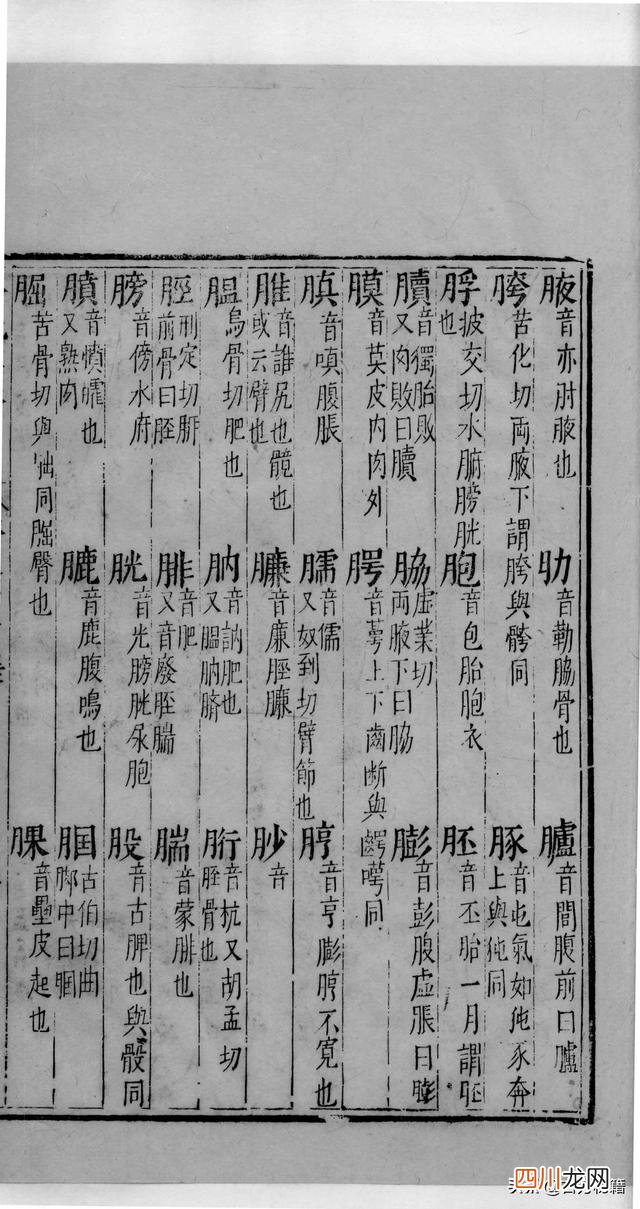 腋音亦肘腋也 肋音勒脇骨也 臚音閭腹前曰臚
胯苦化切両腋下謂胯與骻同 豚音屯氣如㹠豕奔上與㹠同
脬披交切水腑膀胱也 胞音包胎胞衣 胚音丕胎一月謂胚
殰音獨胎敗又肉敗曰殰 脇虛業切両腋下曰脇 膨音彭腹虛脹曰膨
膜音莫皮内肉外 腭音萼上下齒断與齶咢同
䐜音嗔腹脹 臑音儒又奴到切臂節也 脝音亨膨脝不寛也
脽音誰尻也髖也或云臂也 臁音廉脛臁 䏚音
腽烏骨切肥也 肭音訥肥也又膃肭臍 胻音抗又胡孟切脛骨也
脛刑定切胻前骨曰脛 腓音肥又音廢脛腨 腨音蒙腓也
膀音傍水府 胱音光膀胱尿胞 股音古脾也與骰同
膹音憤臛也又熟肉 膔音鹿腹鳴也 膕古伯切曲脚中曰膕
䐇苦骨切與同䐇臀也 腂音壘皮起也
四川龙网